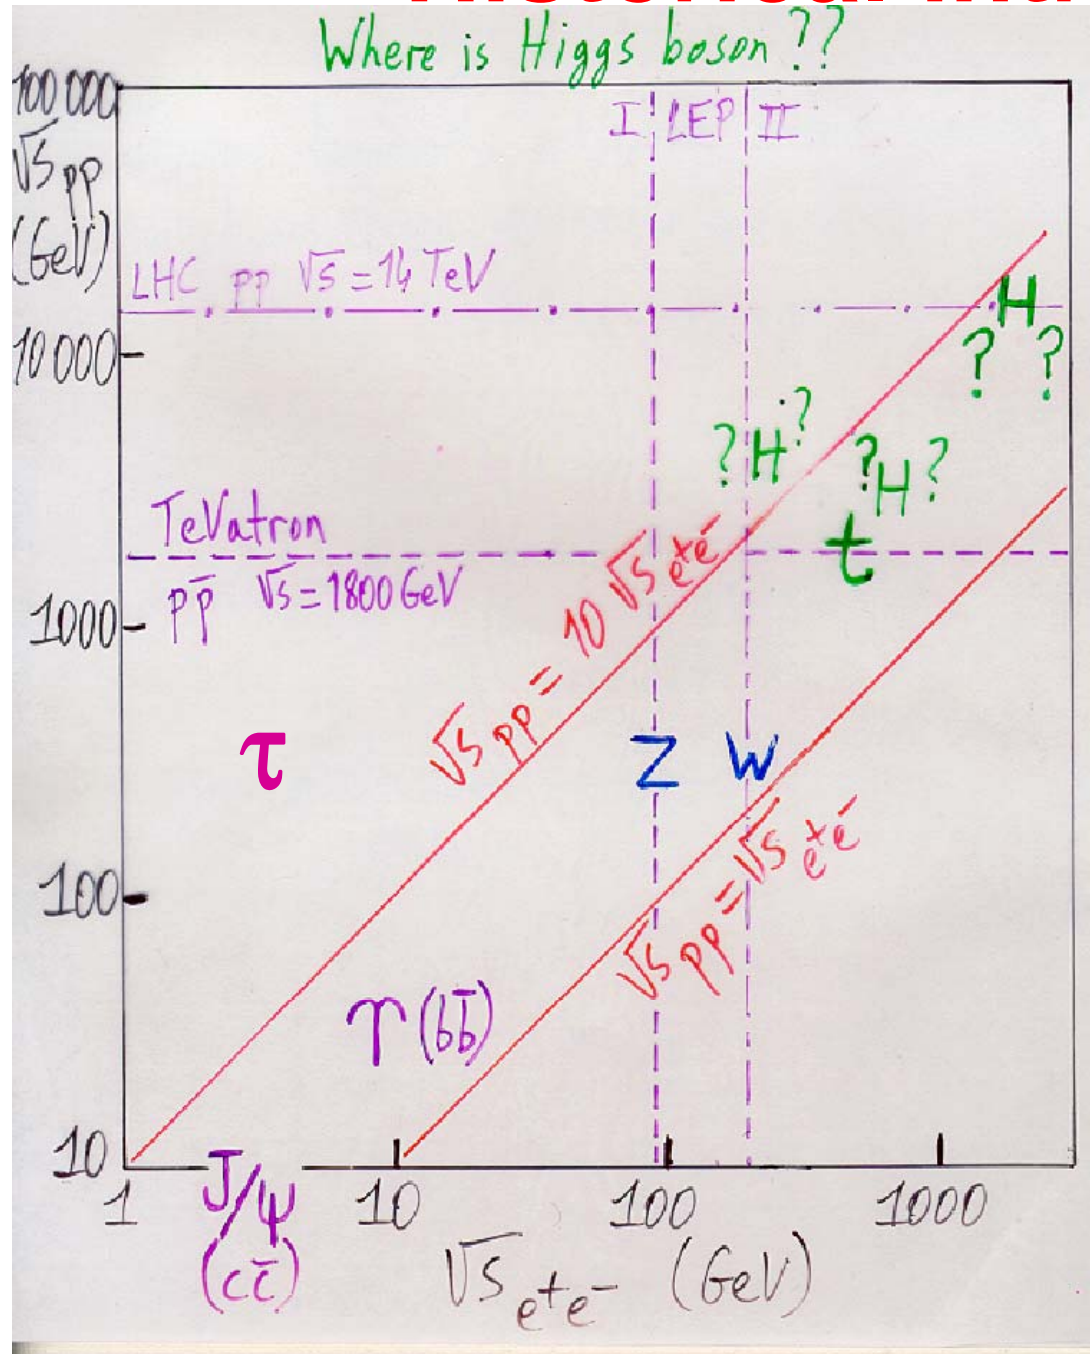 Where is Higgs boson ??
100 000
I LEP II
√s pp
(GeV)
LHC pp √s = 14 TeV
H
? ?
10 000
? H ?
? H ?
TeVatron
t
p p̄ √s = 1800 GeV
1000
√s pp = 10 √s e⁺e⁻
τ
Z W
√s pp = √s e⁺e⁻
100
ϒ (bb̄)
10
1 10 100 1000
J/ψ
(cc̄)
√s e⁺e⁻ (GeV)